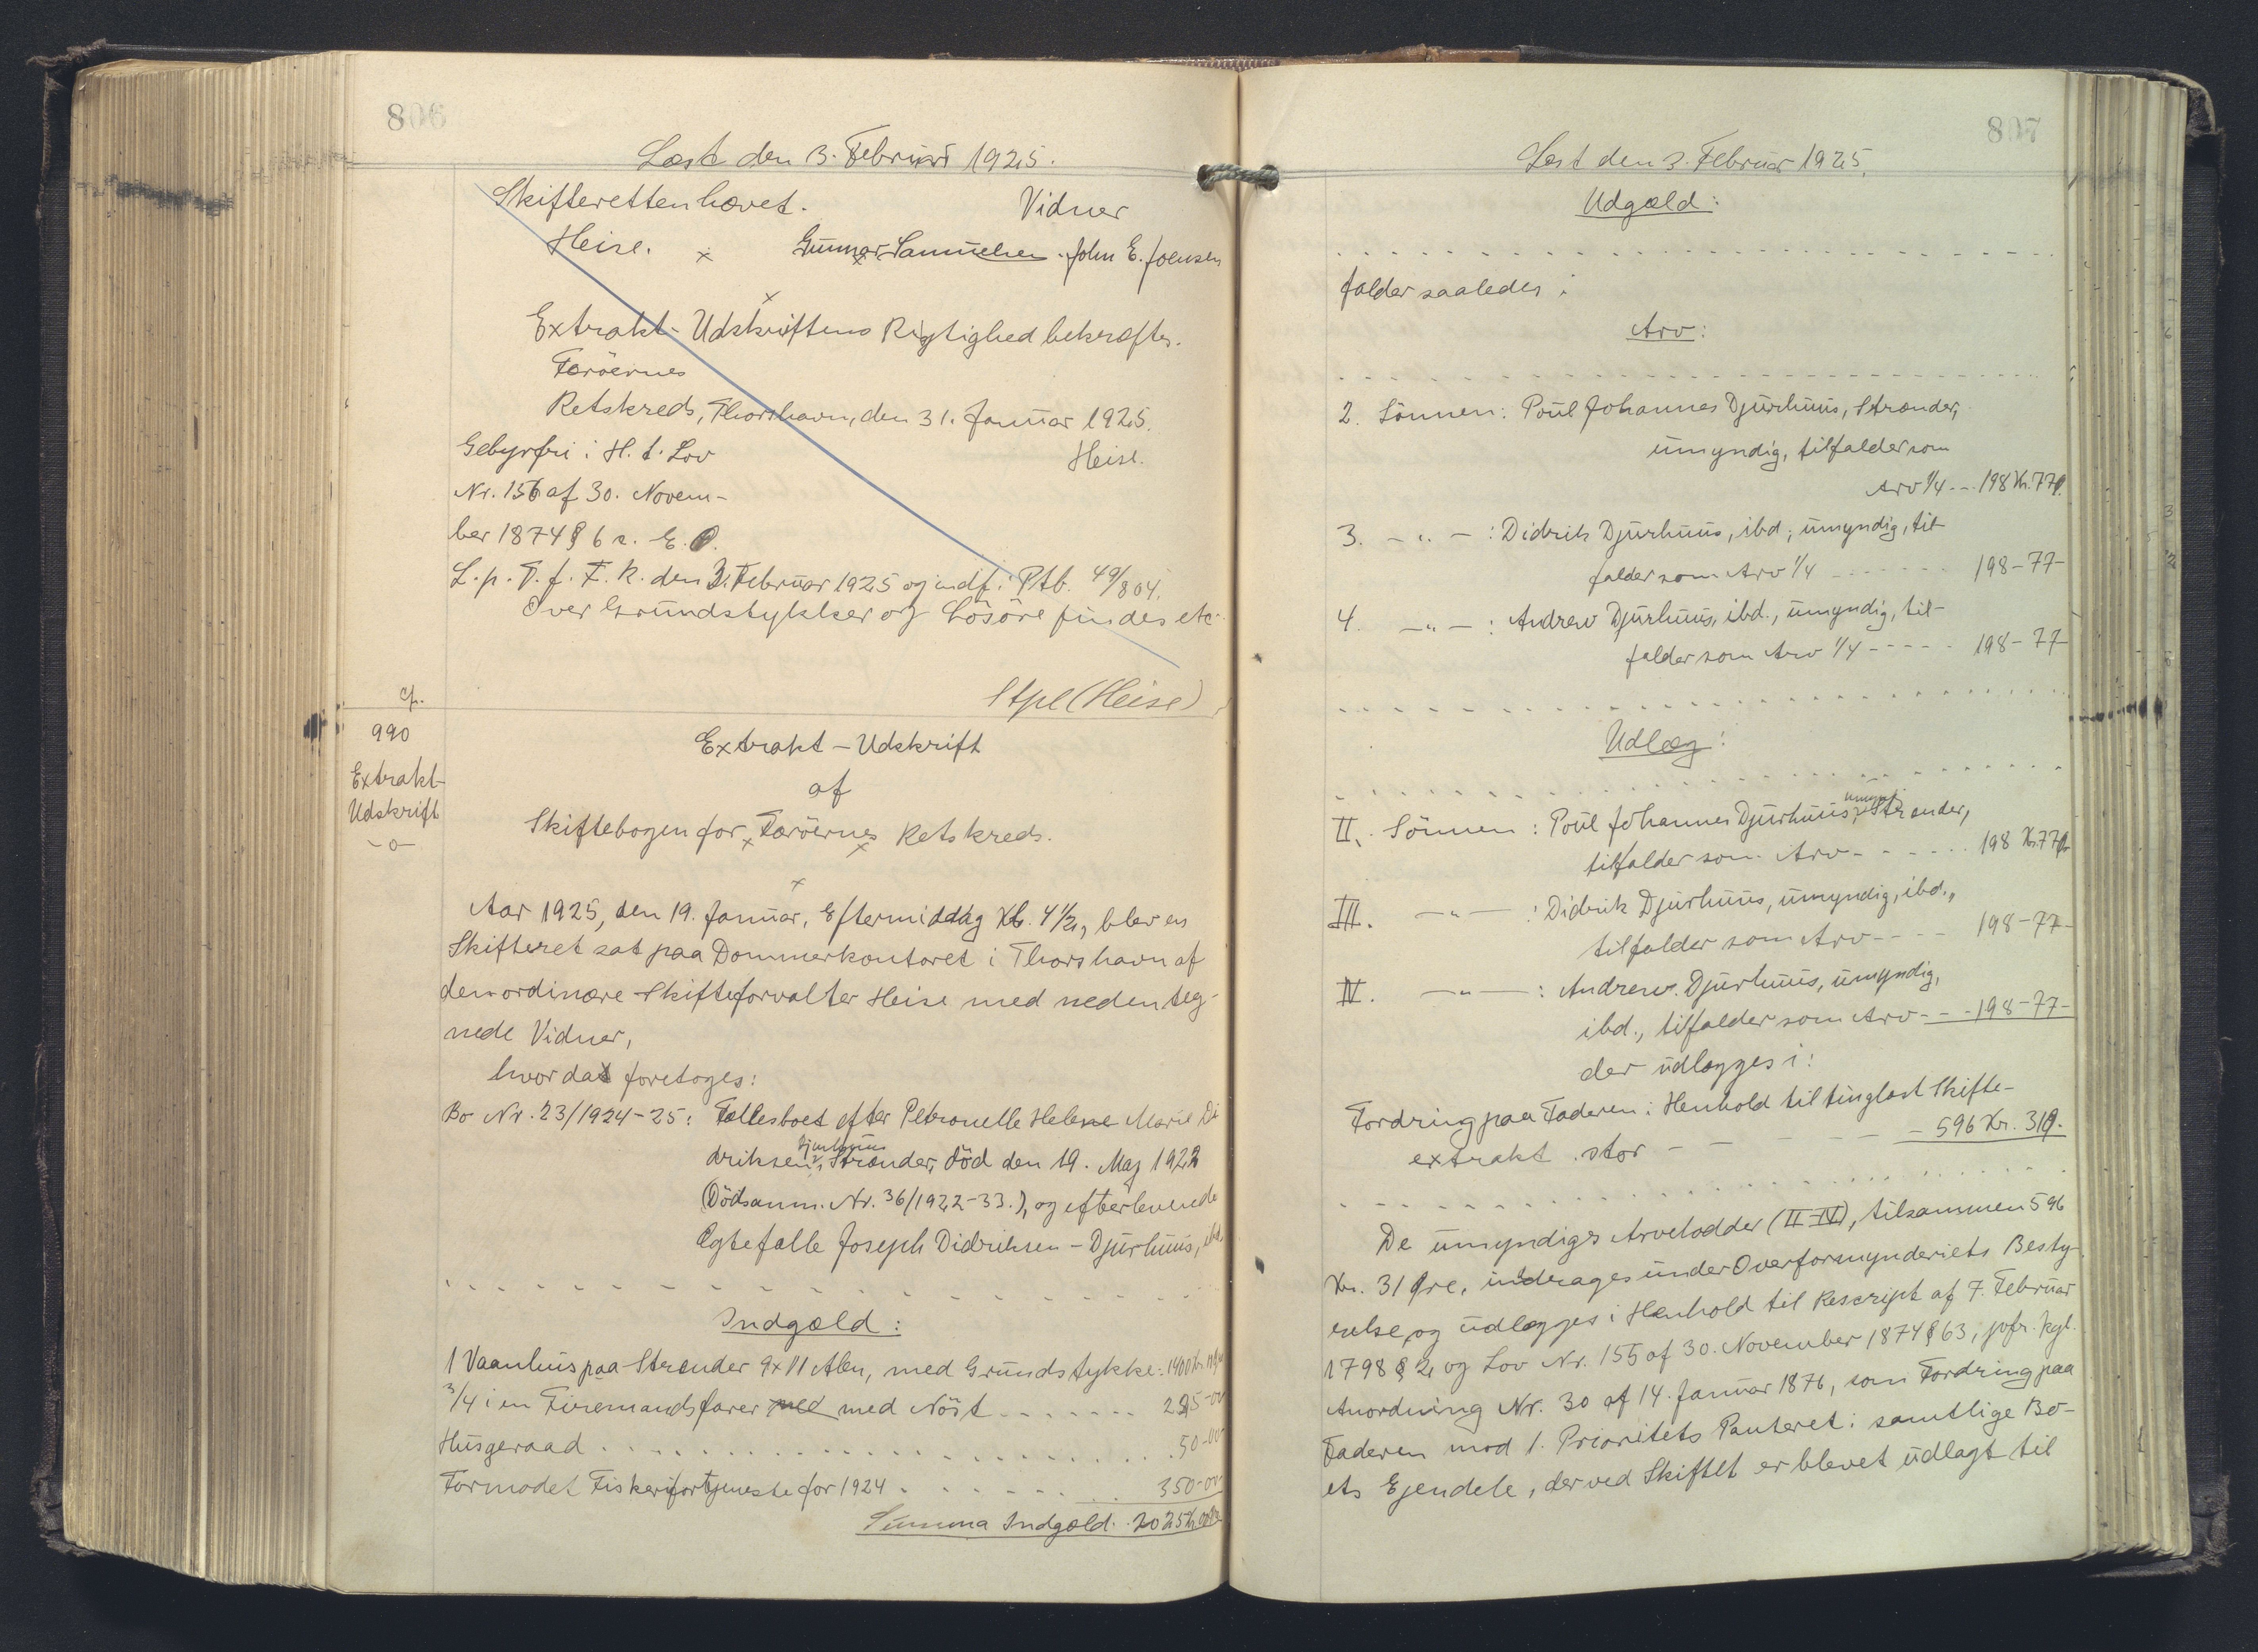 806
Læst den 3. Februar 1925.
Skifteretten hævet.
Vidner
Heise.
Gunnar Samuelsen. John E. Joensen
Extrakt-Udskriftens Rigtighed bekræftes.
Færöernes
Retskreds, Thorshavn, den 31. Januar 1925.
Gebyrfri i H. t. Lov
Heise.
Nr. 156 af 30. Novem-
ber 1874 § 6 s. E. O.
L. p. T. f. F. R. den 3. Februar 1925 og indf. i Ptb. 49/804.
Over Grundstykker og Lösöre findes etc.
(Heise)
cfr.
990
Extrakt-
Udskrift
-o-
Extrakt-Udskrift
af
Skiftebogen for Færöernes Retskreds.
Aar 1925, den 19. Januar, Eftermiddag Kl. 4½, blev en
Skifteret sat paa Dommerkontoret i Thorshavn af
den ordinære Skifteforvalter Heise med nedenteg-
nede Vidner,
hvor da foretoges:
Bo Nr. 23/1924-25: Fællesboet efter Petronelle Helene Marie Di
Djurhuus
driksen, Strænder, död den 19. Maj 1922
(Dödsanm. Nr. 36/1922-33.), og efterlevende
Ægtefælle Joseph Didriksen-Djurhuus, ibd.
Indgæld:
1 Vaanhus paa Strænder 9x11 Alen, med Grundstykke: 1400 Kr.
3/4 i en Firemandsfarer med med Nöst 225-00
Husgeraad 50-00
Formodet Fiskerifortjeneste for 1924 350-00
Summa Indgæld. 2025 Kr.
807
Læst den 3. Februar 1925.
Udgæld:
falder saaledes:
Arv:
2. Sönnen: Poul Johannes Djurhuus, Strænder,
umyndig, tilfalder som
Arv ¼ -- 198 Kr. 77 Ø.
3. -"- : Didrik Djurhuus, ibd., umyndig, til-
falder som Arv ¼ 198-77-
4. -"- : Andrew Djurhuus, ibd., umyndig, til-
falder som Arv ¼ 198-77-
Udlæg:
umynd.
II. Sönnen: Poul Johannes Djurhuus, Strænder,
tilfalder som Arv 198 Kr. 77 Ø
III. -"- : Didrik Djurhuus, umyndig, ibd.,
tilfalder som Arv 198-77-
IV. -"- : Andrew Djurhuus, umyndig,
ibd., tilfalder som Arv 198-77-
der udlægges i:
Fordring paa Faderen i Henhold til tinglæst Skifte-
extrakt stor 596 Kr. 31 Ø.
De umyndiges Arvelodder (II-IV), tilsammen 596
Kr. 31 Øre, inddrages under Overformynderiets Besty-
relse, og udlægges i Henhold til Rescript af 7. Februar
1798 § 2 og Lov Nr. 155 af 30. November 1874 § 63, jvfr. kgl.
Anordning Nr. 30 af 14. Januar 1876, som Fordring paa
Faderen mod 1. Prioritets Panteret i samtlige Bo-
ets Ejendele, der ved Skiftet er blevet udlagt til